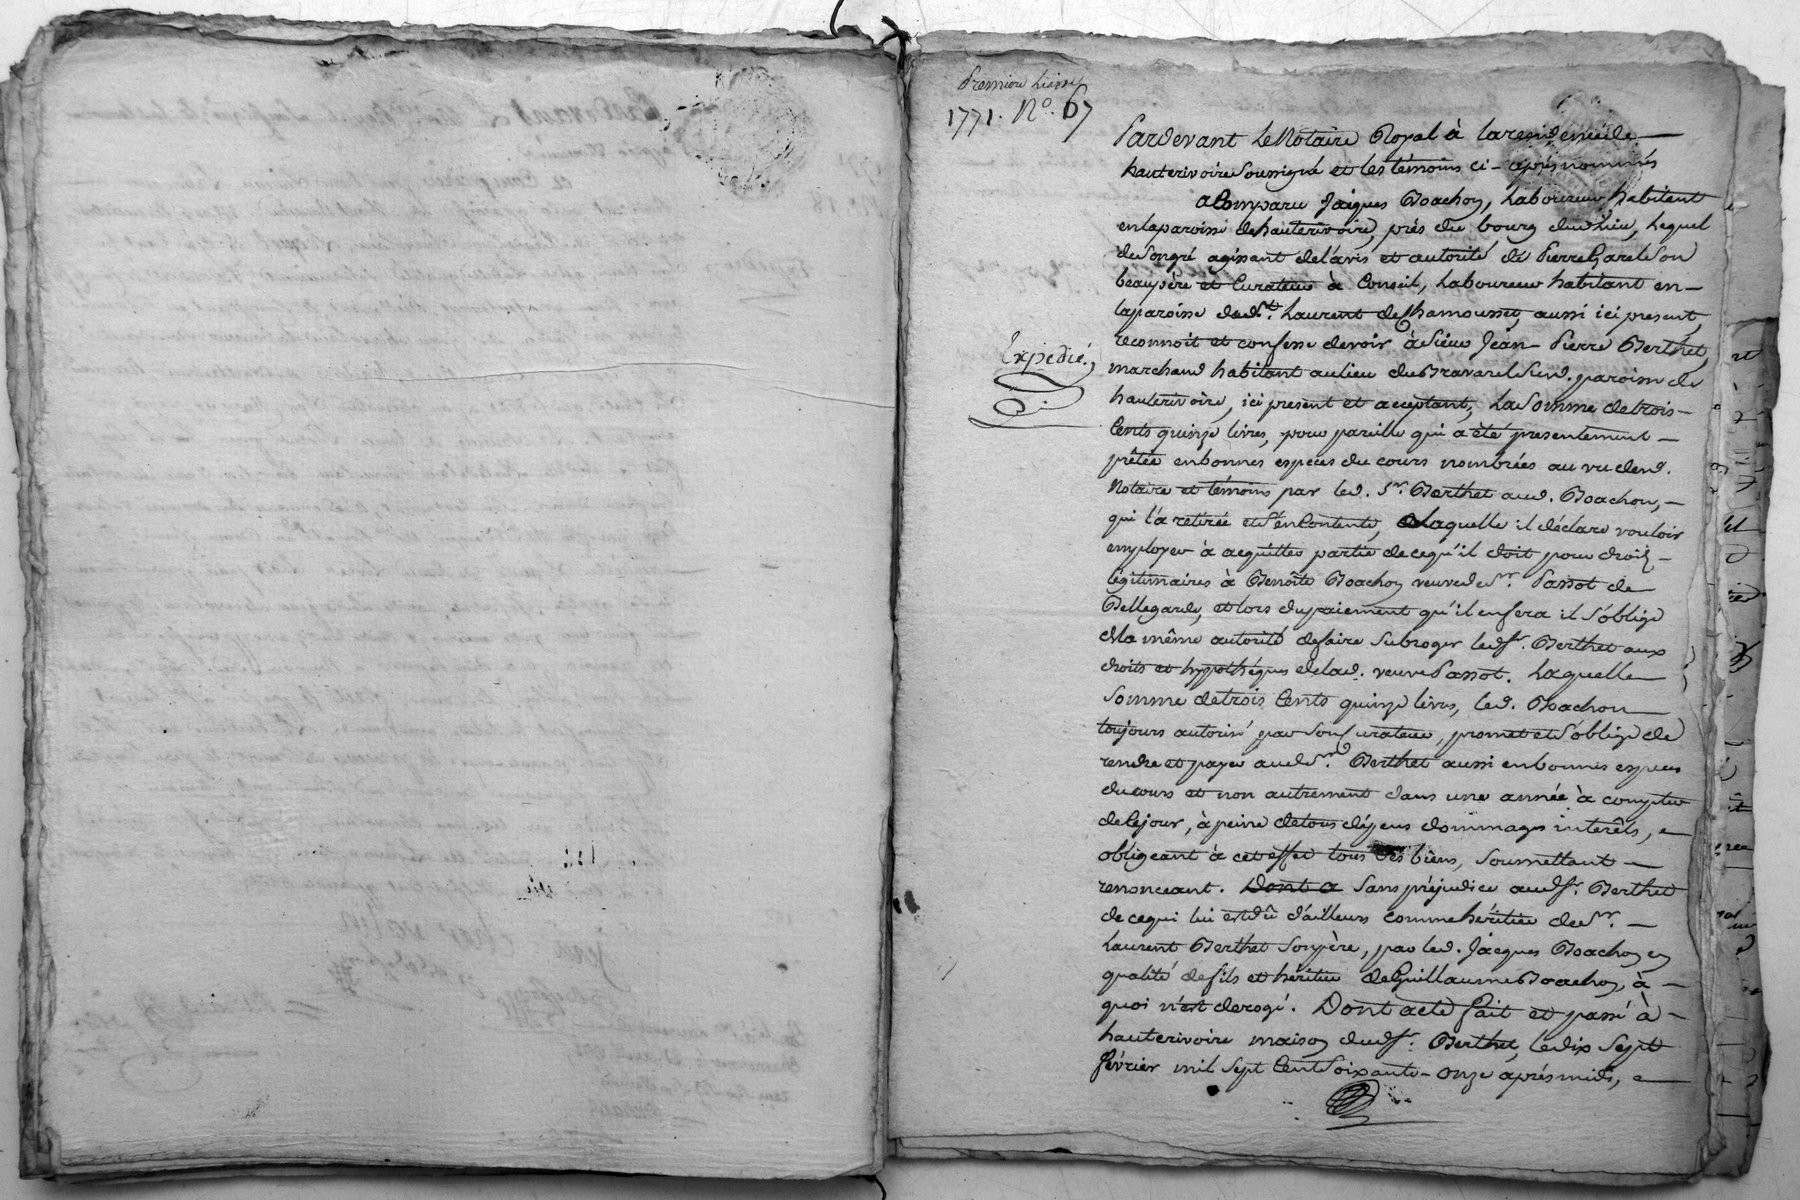 Premiere Liasse
1771. No. 67
Pardevant Le Notaire Royal à la residence de
hauterivoire Soussigné et les témoins ci-après nommés
a Comparu Jacques Boachon, Laboureur habitant
en la paroisse de hauterivoire, près du bourg dud. lieu, Lequel
de Son gré agissant de l'avis et autorité de Pierre Garel Son
beaupère et Curateur à Conseil, Laboureur habitant en
la paroisse de St. Laurent de Chamousset, aussi ici present,
reconnoit et confesse devoir à Sieur Jean-Pierre Berthet,
Expédié.
marchand habitant au lieu du Bravarel Sud. paroisse de
hauterivoire, ici present et acceptant, La Somme de trois
Cents quinze livres, pour pareille qui a été presentement
prêtée en bonnes especes du cours nombrées au vu dend.
Notaire et témoins par led. Sr. Berthet aud. Boachon,
qui l'a retirée et S'en Contente, Laquelle il déclare vouloir
employer à acquitter partie de ce qu'il doit pour droits
légitimaires à Benoîte Boachon veuve de Sr. Passot de
Bellegarde, et lors du paiement qu'il en fera il S'oblige
de la même autorité de faire Subroger led. Sr. Berthet aux
droits et hypothéques de lad. veuve Passot. Laquelle
Somme de trois Cents quinze livres, led. Boachon
toujours autorisé par Son Curateur, promet et S'oblige de
rendre et payer aud. Sr. Berthet aussi en bonnes especes
du cours et non autrement dans une année à compter
de Ce jour, à peine de tous dépens dommages intérêts,
obligeant à cet effet tous Ses biens, Soumettant
renonceant. Dont a Sans préjudice aud. Sr. Berthet
de ce qui lui est dû d'ailleurs comme héritier de Sr.
Laurent Berthet Son père, par led. Jacques Boachon en
qualité de fils et héritier de Guillaume Boachon, à
quoi n'est derogé. Dont acte fait et passé à
hauterivoire maison dud. Sr. Berthet, le dix Sept
février mil Sept Cent Soixante-onze après midi,